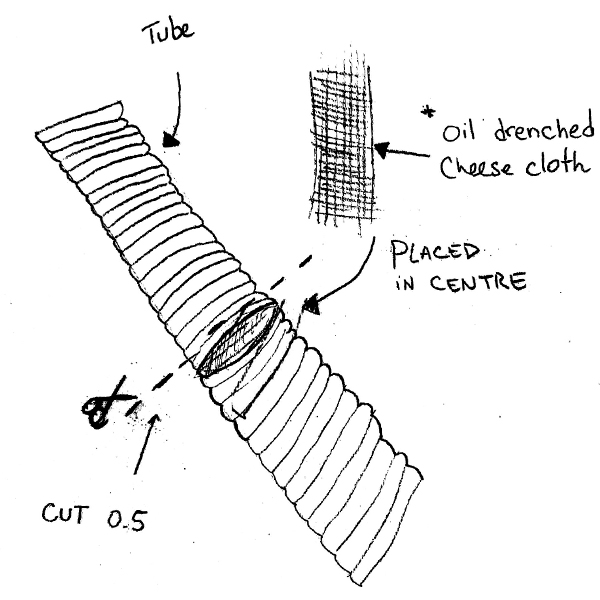 Tube
* Oil drenched
Cheese cloth
PLACED
IN CENTRE
CUT 0.5